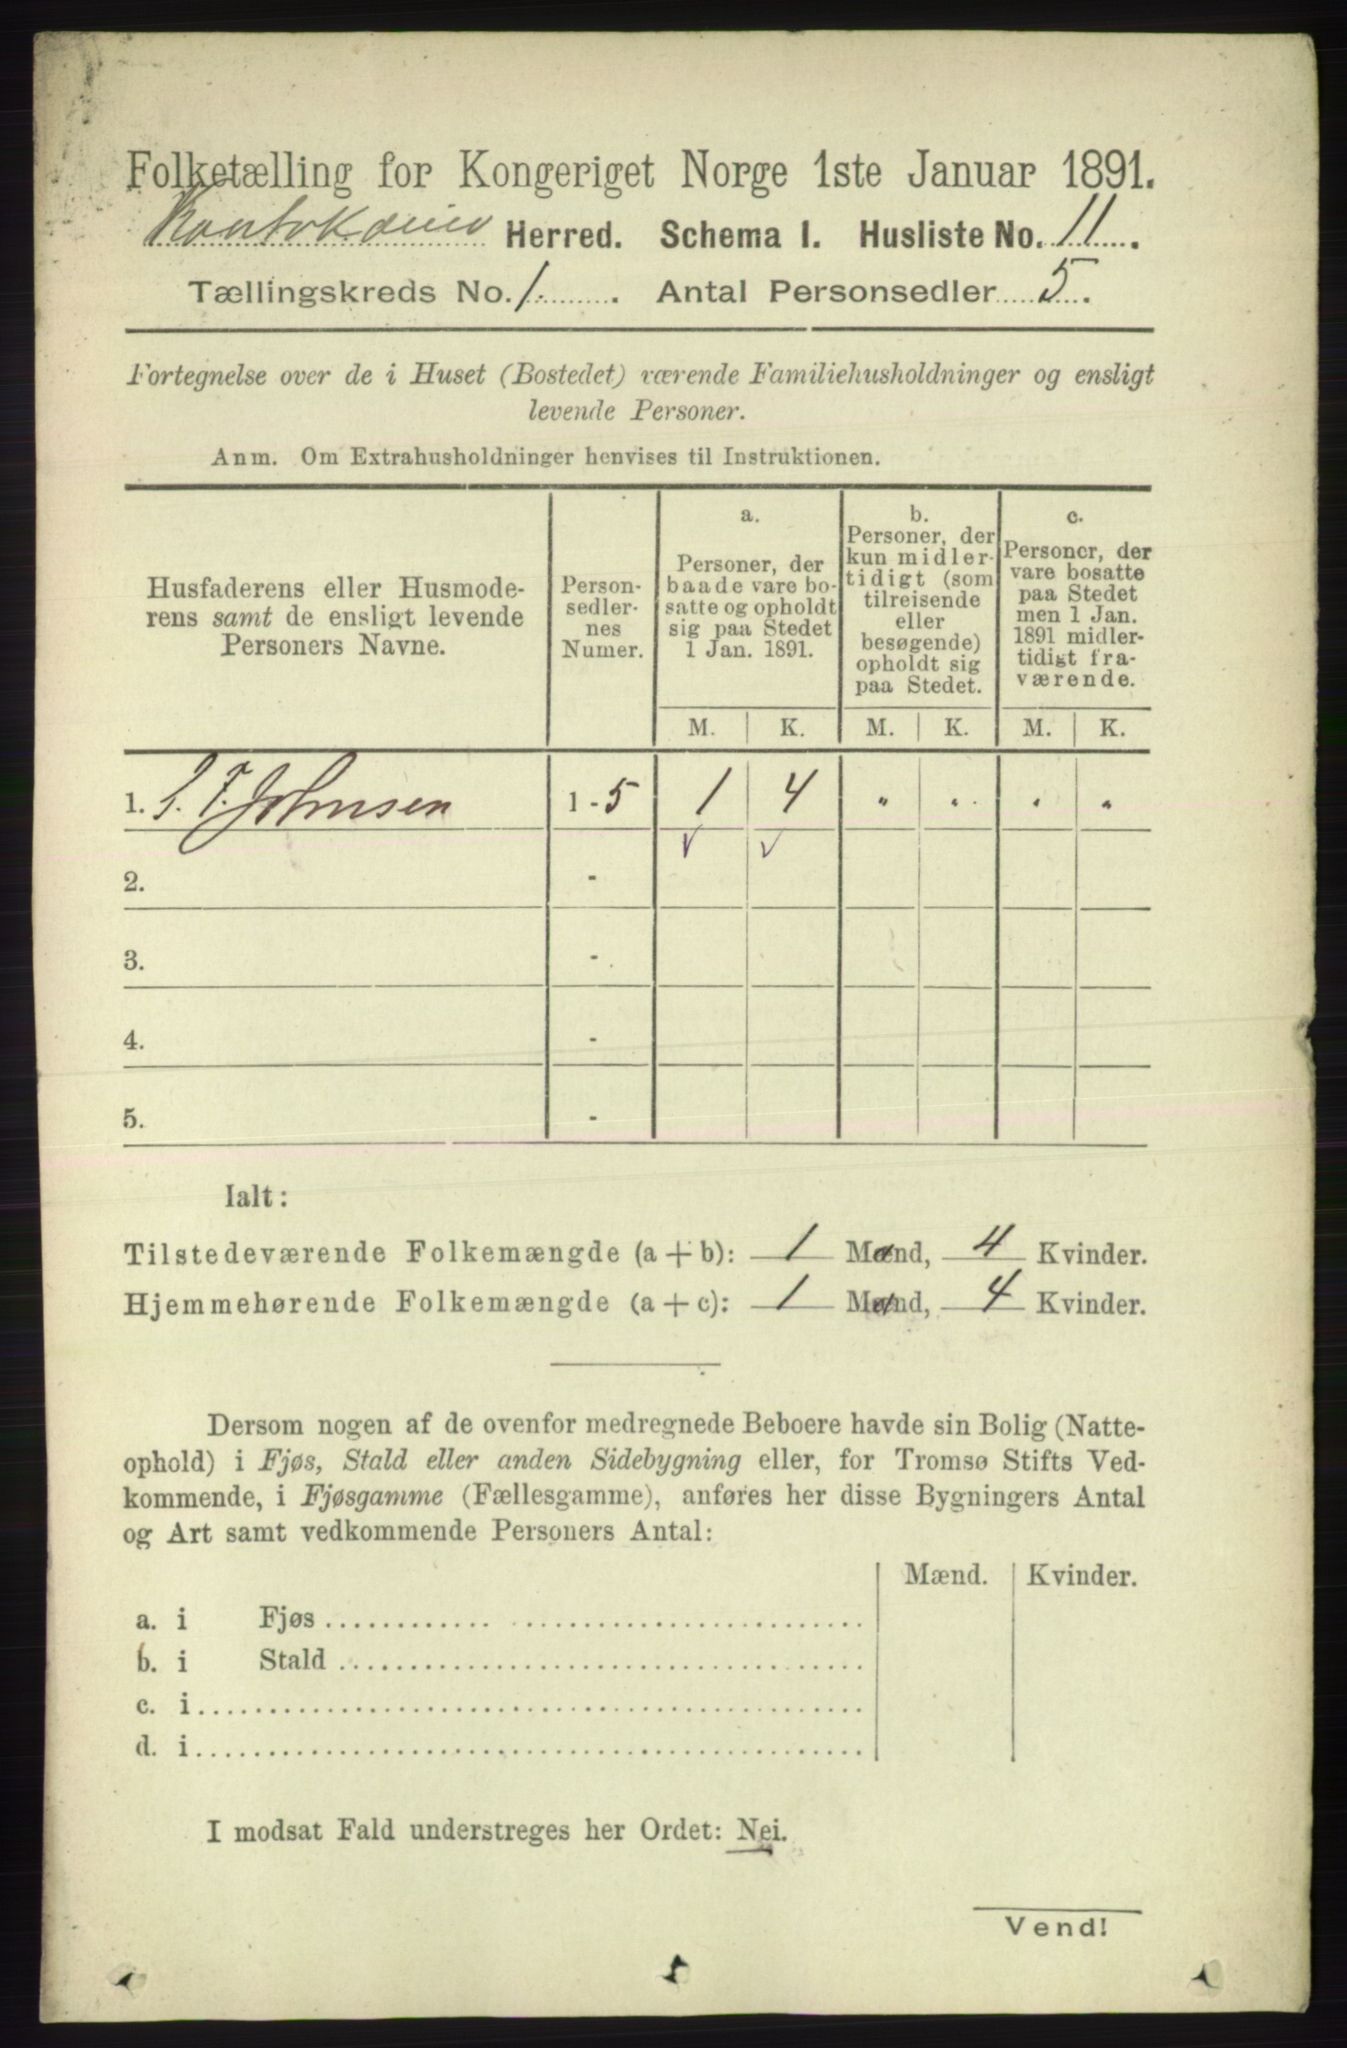 Folketælling for Kongeriget Norge 1ste Januar 1891.
Kautokeino Herred. Schema I. Husliste No. 11.
Tællingskreds No. 1. Antal Personsedler 5.
Fortegnelse over de i Huset (Bostedet) værende Familiehusholdninger og ensligt
levende Personer.
Anm. Om Extrahusholdninger henvises til Instruktionen.
Husfaderens eller Husmode-
rens samt de ensligt levende
Personers Navne.
Person-
sedler-
nes
Numer.
a.
Personer, der
baade vare bo-
satte og opholdt
sig paa Stedet
1 Jan. 1891.
b.
Personer, der
kun midler-
tidigt (som
tilreisende
eller
besøgende)
opholdt sig
paa Stedet.
c.
Personer, der
vare bosatte
paa Stedet
men 1 Jan.
1891 midler-
tidigt fra-
værende.
M. K. M. K. M. K.
1. Johnsen 1 - 5 1 4 " " " "
2. -
3. -
4. -
5. -
Ialt:
Tilstedeværende Folkemængde (a + b): 1 Mand, 4 Kvinder.
Hjemmehørende Folkemængde (a + c): 1 Mand, 4 Kvinder.
Dersom nogen af de ovenfor medregnede Beboere havde sin Bolig (Natte-
ophold) i Fjøs, Stald eller anden Sidebygning eller, for Tromsø Stifts Ved-
kommende, i Fjøsgamme (Fællesgamme), anføres her disse Bygningers Antal
og Art samt vedkommende Personers Antal:
Mænd. Kvinder.
a. i Fjøs
b. i Stald
c. i
d. i
I modsat Fald understreges her Ordet: Nei.
Vend!